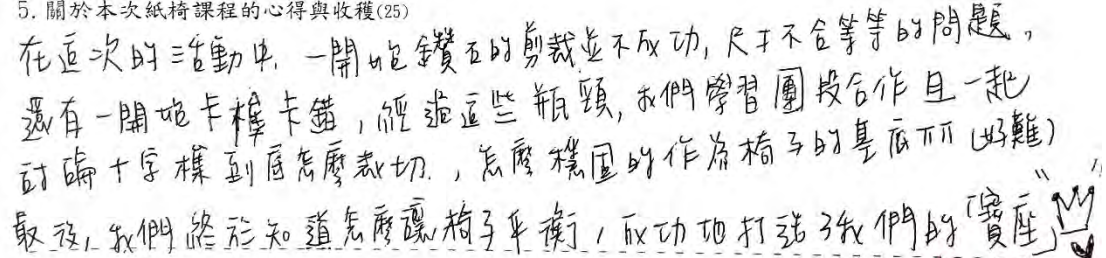 5. 關於本次紙椅課程的心得與收穫(25)
在這次的活動中，一開始鑽石的剪裁並不成功，尺寸不合等等的問題，
還有一開始卡榫卡錯，經過這些瓶頸，我們學習團投合作且一起
討論十字榫到底怎麼裁切，怎麼穩固的作為椅子的基底ㄇㄇ(好難)
最後，我們終於知道怎麼讓椅子平衡，成功地打造了我們的「寶座」